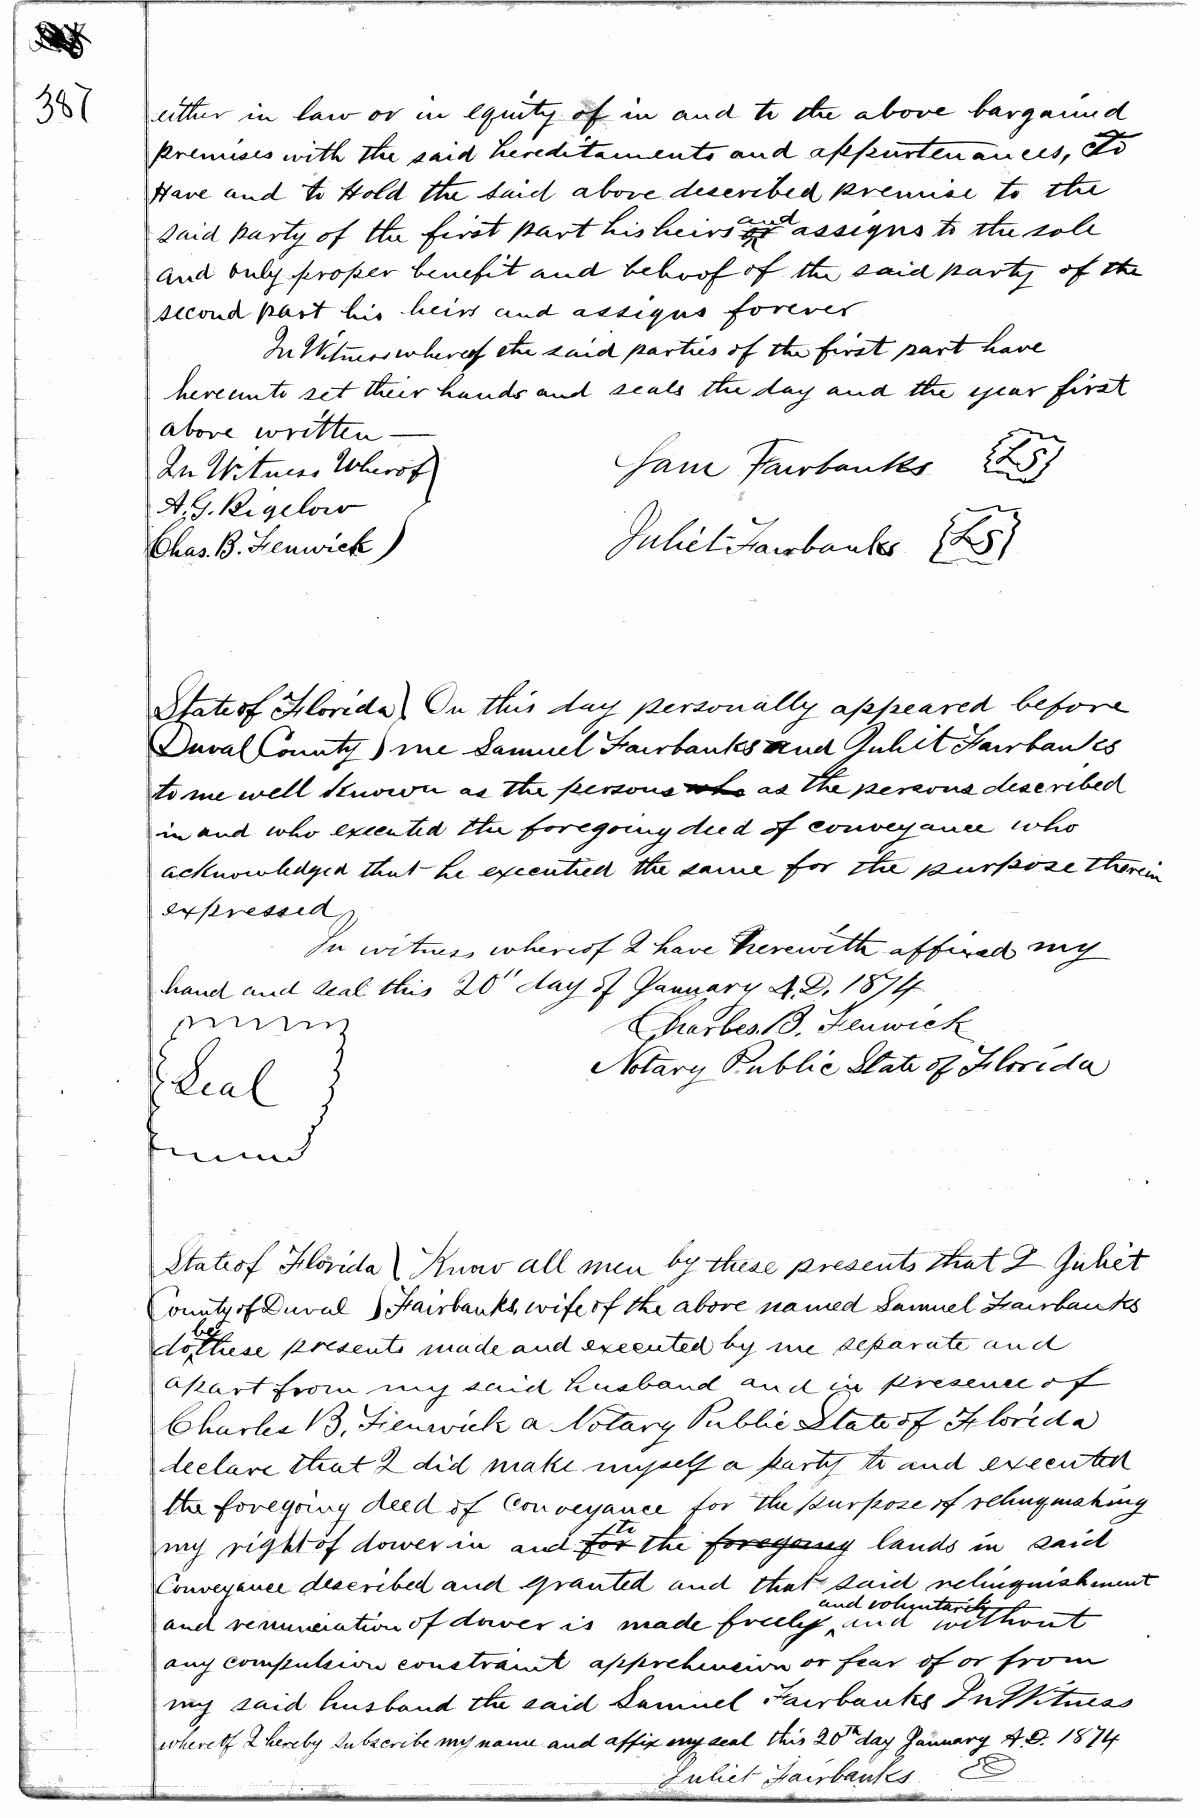 387
either in law or in equity of in and to the above bargained
premises with the said hereditaments and appurtenances, To
Have and to Hold the said above described premise to the
said party of the first part his heirs or and assigns to the sole
and only proper benefit and behoof of the said party of the
second part his heirs and assigns forever
In Witness whereof the said parties of the first part have
hereunto set their hands and seals the day and the year first
above written —
In Witness Wherof
Sam Fairbanks {LS}
A. G. Bigelow
Chas. B. Fenwick
Juliet Fairbanks {LS}
State of Florida ) On this day personally appeared before
Duval County ) me Samuel Fairbanks and Juliet Fairbanks
to me well known as the persons who as the persons described
in and who executed the foregoing deed of conveyance who
acknowledged that he executed the same for the purpose therein
expressed
In witness whereof I have herewith affixed my
hand and seal this 20" day of January A.D. 1874
Charles B. Fenwick
Notary Public State of Florida
Seal
State of Florida ) Know all men by these presents that I Juliet
County of Duval ) Fairbanks, wife of the above named Samuel Fairbanks
do by these presents made and executed by me separate and
apart from my said husband and in presence of
Charles B. Fienwick a Notary Public State of Florida
declare that I did make myself a party to and executed
the foregoing deed of Conveyance for the purpose of relinquishing
my right of dower in and for to the foregoing lands in said
Conveyance described and granted and that said relinquishment
and renunciation of dower is made freely and voluntarily and without
any compulsion constraint apprehension or fear of or from
my said husband the said Samuel Fairbanks In Witness
whereof I hereby subscribe my name and affix my seal this 20th day January A.D. 1874
Juliet Fairbanks